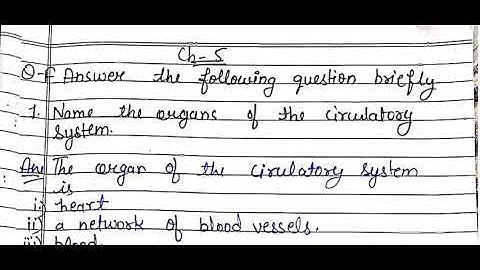 Ch-5
Q-F Answer the following question briefly
1. Name the organs of the circulatory
system.
Ans The organ of the cirulatory system
is
i) heart
ii) a network of blood vessels.
iii) blood